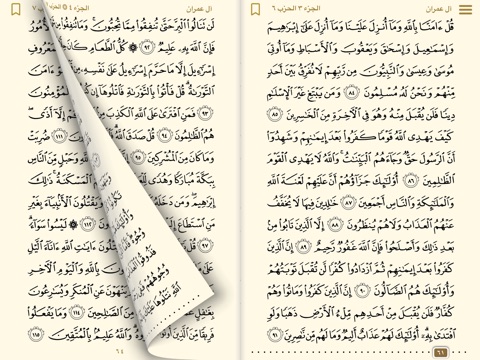 آل عمران
الجزء ٣ الحزب ٦
قُلْ ءَامَنَّا بِٱللَّهِ وَمَآ أُنزِلَ عَلَيْنَا وَمَآ أُنزِلَ عَلَىٰٓ إِبْرَٰهِيمَ
وَإِسْمَٰعِيلَ وَإِسْحَٰقَ وَيَعْقُوبَ وَٱلْأَسْبَاطِ وَمَآ أُوتِىَ
مُوسَىٰ وَعِيسَىٰ وَٱلنَّبِيُّونَ مِن رَّبِّهِمْ لَا نُفَرِّقُ بَيْنَ أَحَدٍ
مِّنْهُمْ وَنَحْنُ لَهُۥ مُسْلِمُونَ ٨٤ وَمَن يَبْتَغِ غَيْرَ ٱلْإِسْلَٰمِ
دِينًا فَلَن يُقْبَلَ مِنْهُ وَهُوَ فِى ٱلْءَاخِرَةِ مِنَ ٱلْخَٰسِرِينَ ٨٥
كَيْفَ يَهْدِى ٱللَّهُ قَوْمًا كَفَرُوا۟ بَعْدَ إِيمَٰنِهِمْ وَشَهِدُوٓا۟
أَنَّ ٱلرَّسُولَ حَقٌّ وَجَآءَهُمُ ٱلْبَيِّنَٰتُ ۚ وَٱللَّهُ لَا يَهْدِى ٱلْقَوْمَ
ٱلظَّٰلِمِينَ ٨٦ أُو۟لَٰٓئِكَ جَزَآؤُهُمْ أَنَّ عَلَيْهِمْ لَعْنَةَ ٱللَّهِ
وَٱلْمَلَٰٓئِكَةِ وَٱلنَّاسِ أَجْمَعِينَ ٨٧ خَٰلِدِينَ فِيهَا لَا يُخَفَّفُ
عَنْهُمُ ٱلْعَذَابُ وَلَا هُمْ يُنظَرُونَ ٨٨ إِلَّا ٱلَّذِينَ تَابُوا۟ مِنۢ
بَعْدِ ذَٰلِكَ وَأَصْلَحُوا۟ فَإِنَّ ٱللَّهَ غَفُورٌ رَّحِيمٌ ٨٩ إِنَّ ٱلَّذِينَ
كَفَرُوا۟ بَعْدَ إِيمَٰنِهِمْ ثُمَّ ٱزْدَادُوا۟ كُفْرًا لَّن تُقْبَلَ تَوْبَتُهُمْ
وَأُو۟لَٰٓئِكَ هُمُ ٱلضَّآلُّونَ ٩٠ إِنَّ ٱلَّذِينَ كَفَرُوا۟ وَمَاتُوا۟ وَهُمْ
كُفَّارٌ فَلَن يُقْبَلَ مِنْ أَحَدِهِم مِّلْءُ ٱلْأَرْضِ ذَهَبًا وَلَوِ
ٱفْتَدَىٰ بِهِۦٓ ۗ أُو۟لَٰٓئِكَ لَهُمْ عَذَابٌ أَلِيمٌ وَمَا لَهُم مِّن نَّٰصِرِينَ ٩١
٦١
آل عمران
الجزء ٤
لَن تَنَالُوا۟ ٱلْبِرَّ حَتَّىٰ تُنفِقُوا۟ مِمَّا تُحِبُّونَ ۚ وَمَا
فَإِنَّ ٱللَّهَ بِهِۦ عَلِيمٌ ٩٢ ۞ كُلُّ ٱلطَّعَامِ كَانَ
إِسْرَٰٓءِيلَ إِلَّا مَا حَرَّمَ إِسْرَٰٓءِيلُ عَلَىٰ نَفْسِهِۦ مِن
ٱلتَّوْرَىٰةُ ۗ قُلْ فَأْتُوا۟ بِٱلتَّوْرَىٰةِ فَٱتْلُوهَآ إِن
فَمَنِ ٱفْتَرَىٰ عَلَى ٱللَّهِ ٱلْكَذِبَ مِنۢ إِلَّآ أَذًى
هُمُ ٱلظَّٰلِمُونَ ٩٤ قُلْ صَدَقَ ٱللَّهُ ١١١ ضُرِبَتْ
وَمَا كَانَ مِنَ ٱلْمُشْرِكِينَ ٩٥ وَحَبْلٍ مِّنَ ٱلنَّاسِ
بِبَكَّةَ مُبَارَكًا وَهُدًى ٱلْمَسْكَنَةُ ۚ ذَٰلِكَ
إِبْرَٰهِيمَ ۖ وَمَن وَيَقْتُلُونَ ٱلْأَنۢبِيَآءَ بِغَيْرِ
مَنِ ٱسْتَطَاعَ ١١٢ ۞ لَيْسُوا۟ سَوَآءً
٩٧ قُلْ ءَايَٰتِ ٱللَّهِ ءَانَآءَ ٱلَّيْلِ
بِٱللَّهِ وَٱلْيَوْمِ ٱلْءَاخِرِ
وَيَنْهَوْنَ عَنِ ٱلْمُنكَرِ وَيُسَٰرِعُونَ
١١٤ وَمَا يَفْعَلُوا۟
فَرِيقًا مِّنَ ٱلَّذِينَ وَٱللَّهُ عَلِيمٌۢ بِٱلْمُتَّقِينَ ١١٥
٦٤